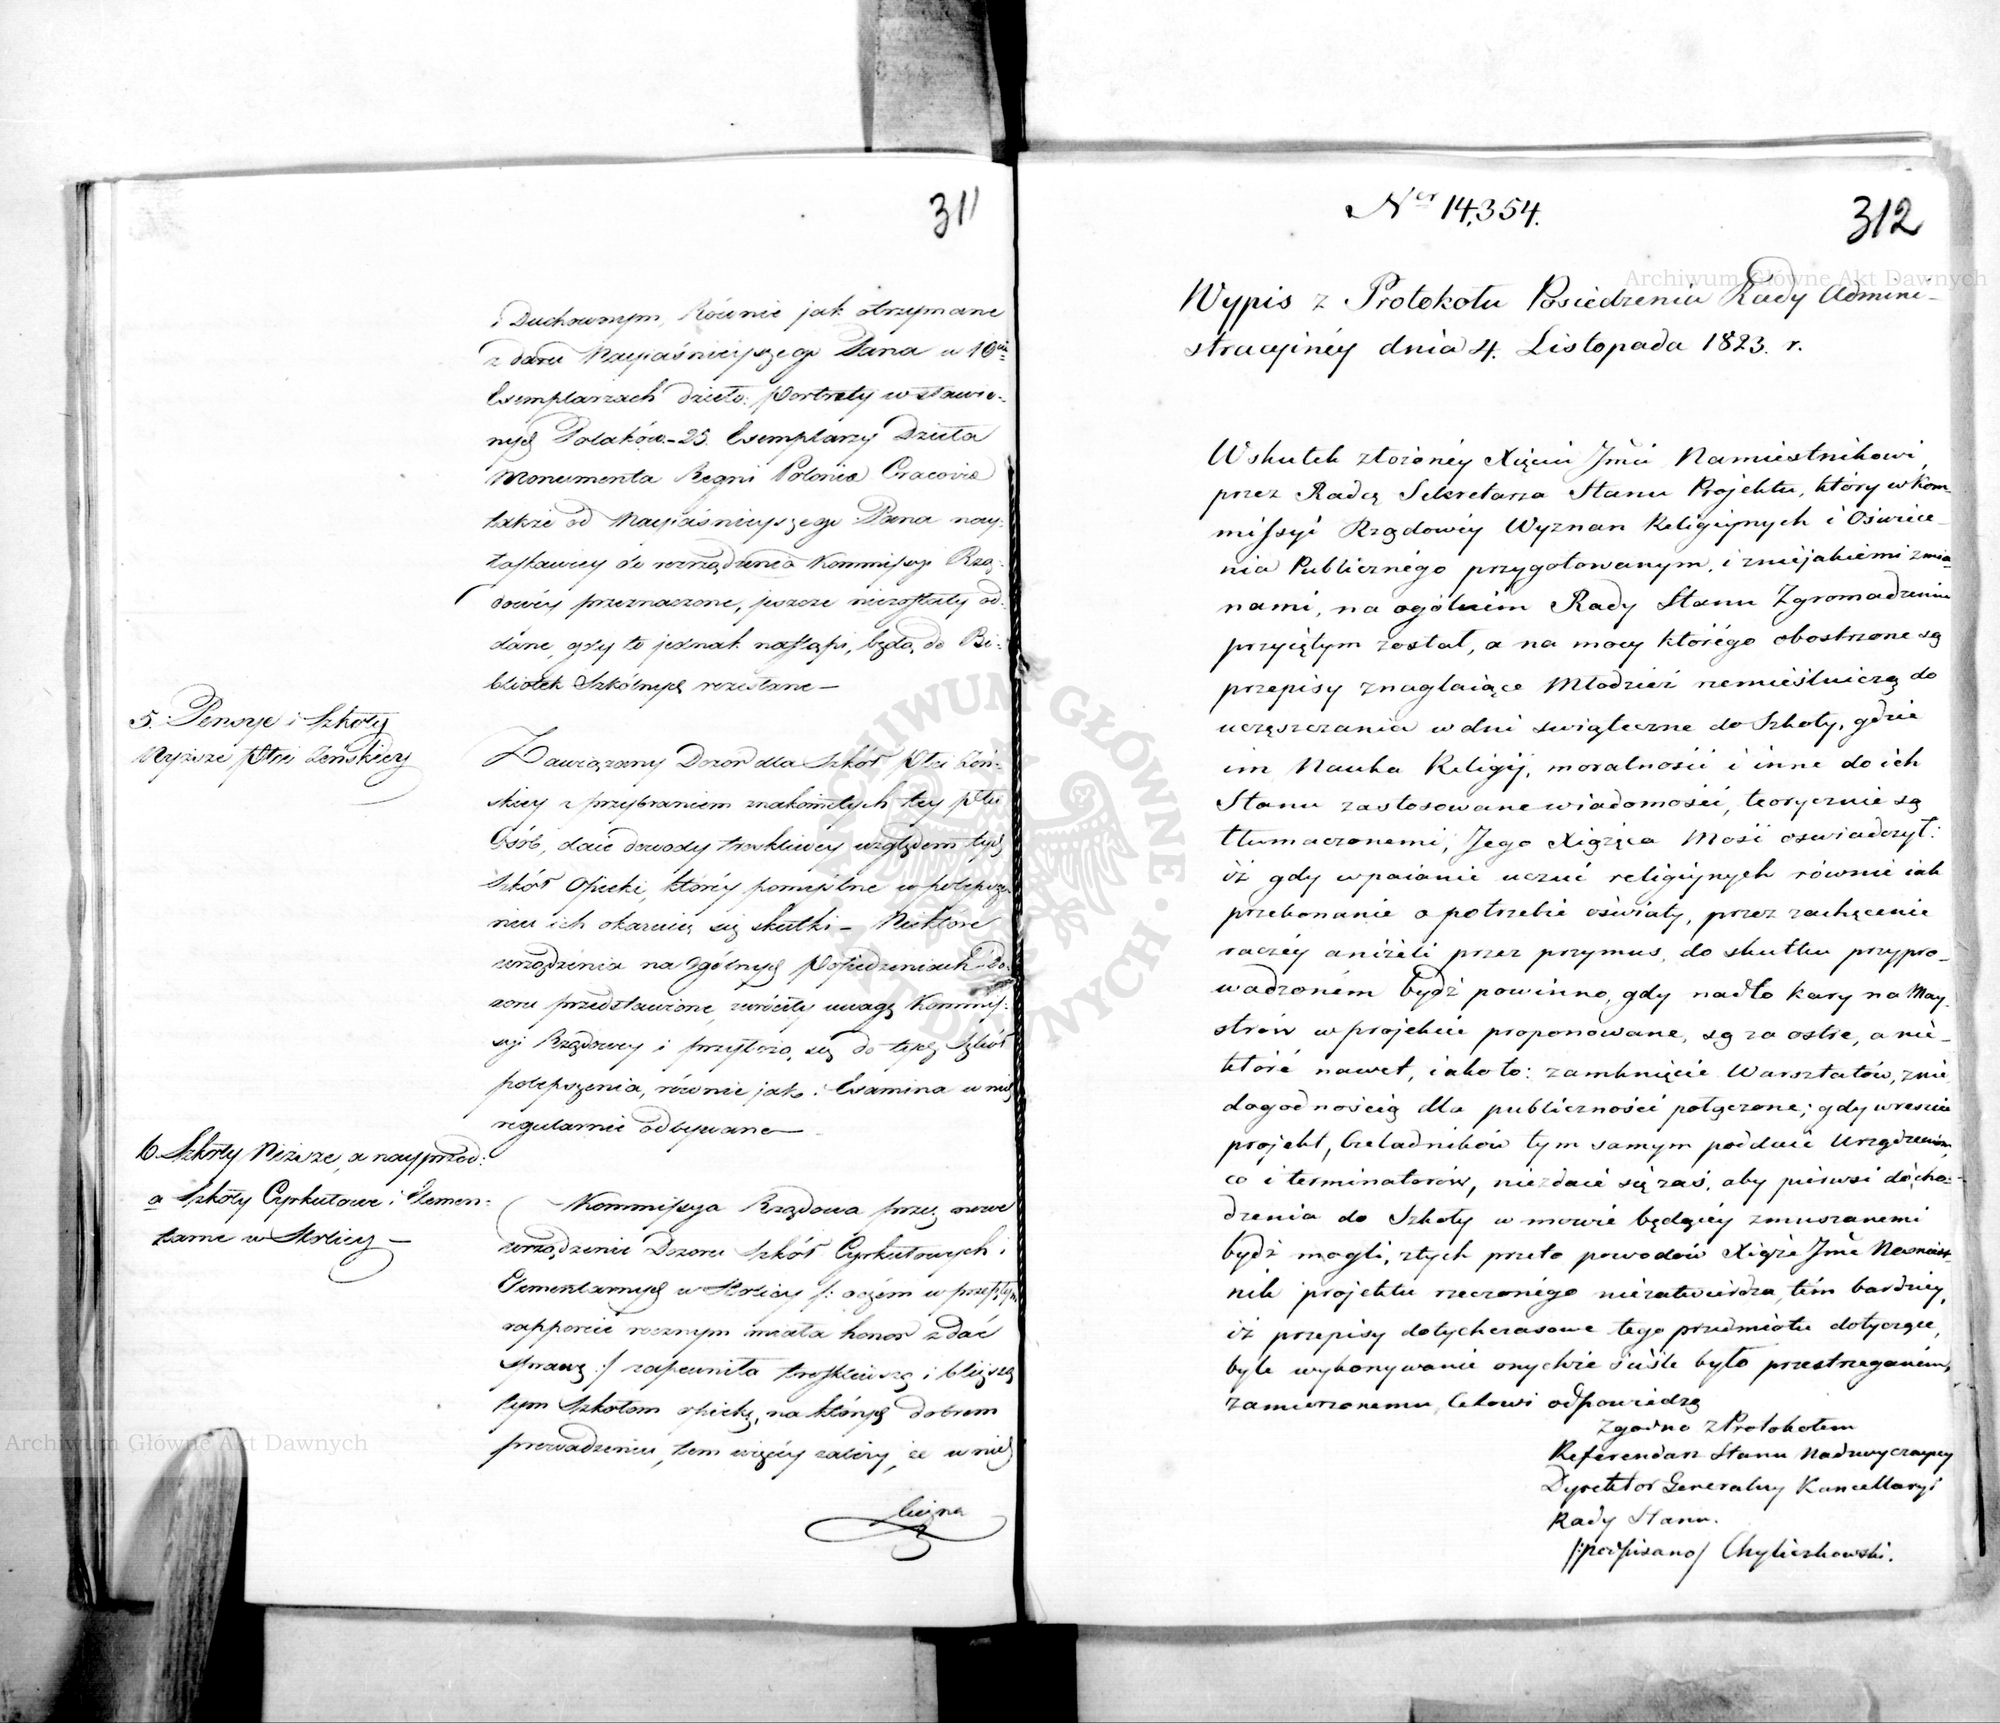 311
i Duchownym, Równie jak otrzymane
z daru Nayjaśnieyszego Pana w 10ciu
Exemplarzach dzieło: Portrety wsławio-
nych Polaków – 25. Exemplarzy Dzieła
Monumenta Regni Poloniæ Cracoviæ
także od Nayjaśnieyszego Pana nay-
łaskawiey do rozrządzenia Kommissyi Rzą-
dowéy przeznaczone, jeszcze niezostały od-
dane, gdy to jednak nastąpi, będą do Bi-
bliotek Szkolnych rozesłane –
5. Pensye i Szkoły
Wyższe płci żeńskiey
Zawiązany Dozór dla Szkół płci żeń-
skiey z przybraniem znakomitych tey płci
Osób, daie dowody troskliwey względem tych
Szkół Opieki, któréy pomyślne w polepsze-
niu ich okazuią się skutki – Niektóre
urządzenia na Ogólnych Posiedzeniach Do-
zoru przedstawione, zwróciły uwagę Kommis-
syi Rządowey i przyłożą się do tych Szkół
polepszenia, równie jak i Examina w nich
regularnie odbywane –
6. Szkoły Niższe, a nayprzód:
a Szkoły Cyrkułowe i Elemen-
tarne w Stolicy –
Kommissya Rządowa przez nowe
urządzenie Dozoru Szkół Cyrkułowych i
Elementarnych w Stolicy /: o czém w przeszłym
rapporcie rocznym miała honor zdać
sprawę :/ zapewniła troskliwszą i bliższą
tym Szkołom opiekę, na których dobrem
prowadzeniu, tem więcéy zależy, że w nich
liczna
Ner 14,354.
312
Wypis z Protokołu Posiedzenia Rady Admini-
stracyinéy dnia 4. Listopada 1823. r.
Wskutek złożonéy Xięciu Jmći Namiestnikowi,
przez Radcę Sekretarza Stanu Projektu, który w Kom-
missyi Rządowéy Wyznań Religiynych i Oświece-
nia Publicznégo przygotowanym, i z niejakiemi zmia-
nami, na ogólném Rady Stanu Zgromadzeniu
przyiętym został, a na mocy którégo obostrzone są
przepisy znaglaiące Młodzież rzemieślniczą do
uczęszczania w dni świąteczne do Szkoły, gdzie
im Nauka Religij, moralności i inne do ich
Stanu zastosowane wiadomości, teorycznie są
tłumaczonemi; Jego Xiążęca Mość oświadczył:
iż gdy wpaianie uczuć religiynych równie iak
przekonanie o potrzebie oświaty, przez zachęcenie
raczéy aniżeli przez przymus, do skutku przypro-
wadzoném bydź powinno, gdy nadto kary na May-
strów w projekcie proponowane, są za ostre, a nie-
któré nawet, iako to: zamknięcie Warsztatów, z nie-
dogodnością dla publiczności połączone; gdy wreszcie
projekt, Czeladników tym samym poddaie Urządzeniom
co i terminatorów, niezdaie się zaś, aby pierwsi do cho-
dzenia do Szkoły w mowie będącéy zmuszanemi
bydź mogli, z tych przeto powodów Xiążę Jmć Namiest-
nik projektu rzeczonégo niezatwierdza, tém bardziéy,
iż przepisy dotychczasowe tego przedmiotu dotyczące,
byle wykonywanie onychże ściśle było przestrzeganém,
zamierzonemu Celowi odpowiedzą
Zgodno z Protokołem
Referendarz Stanu Nadzwyczayny
Dyrektor Generalny Kancellaryi
Rady Stanu.
/:podpisano/ Chyliczkowski.
Archiwum Główne Akt Dawnych
Archiwum Główne Akt Dawnych
ARCHIWUM GŁÓWNE AKT DAWNYCH